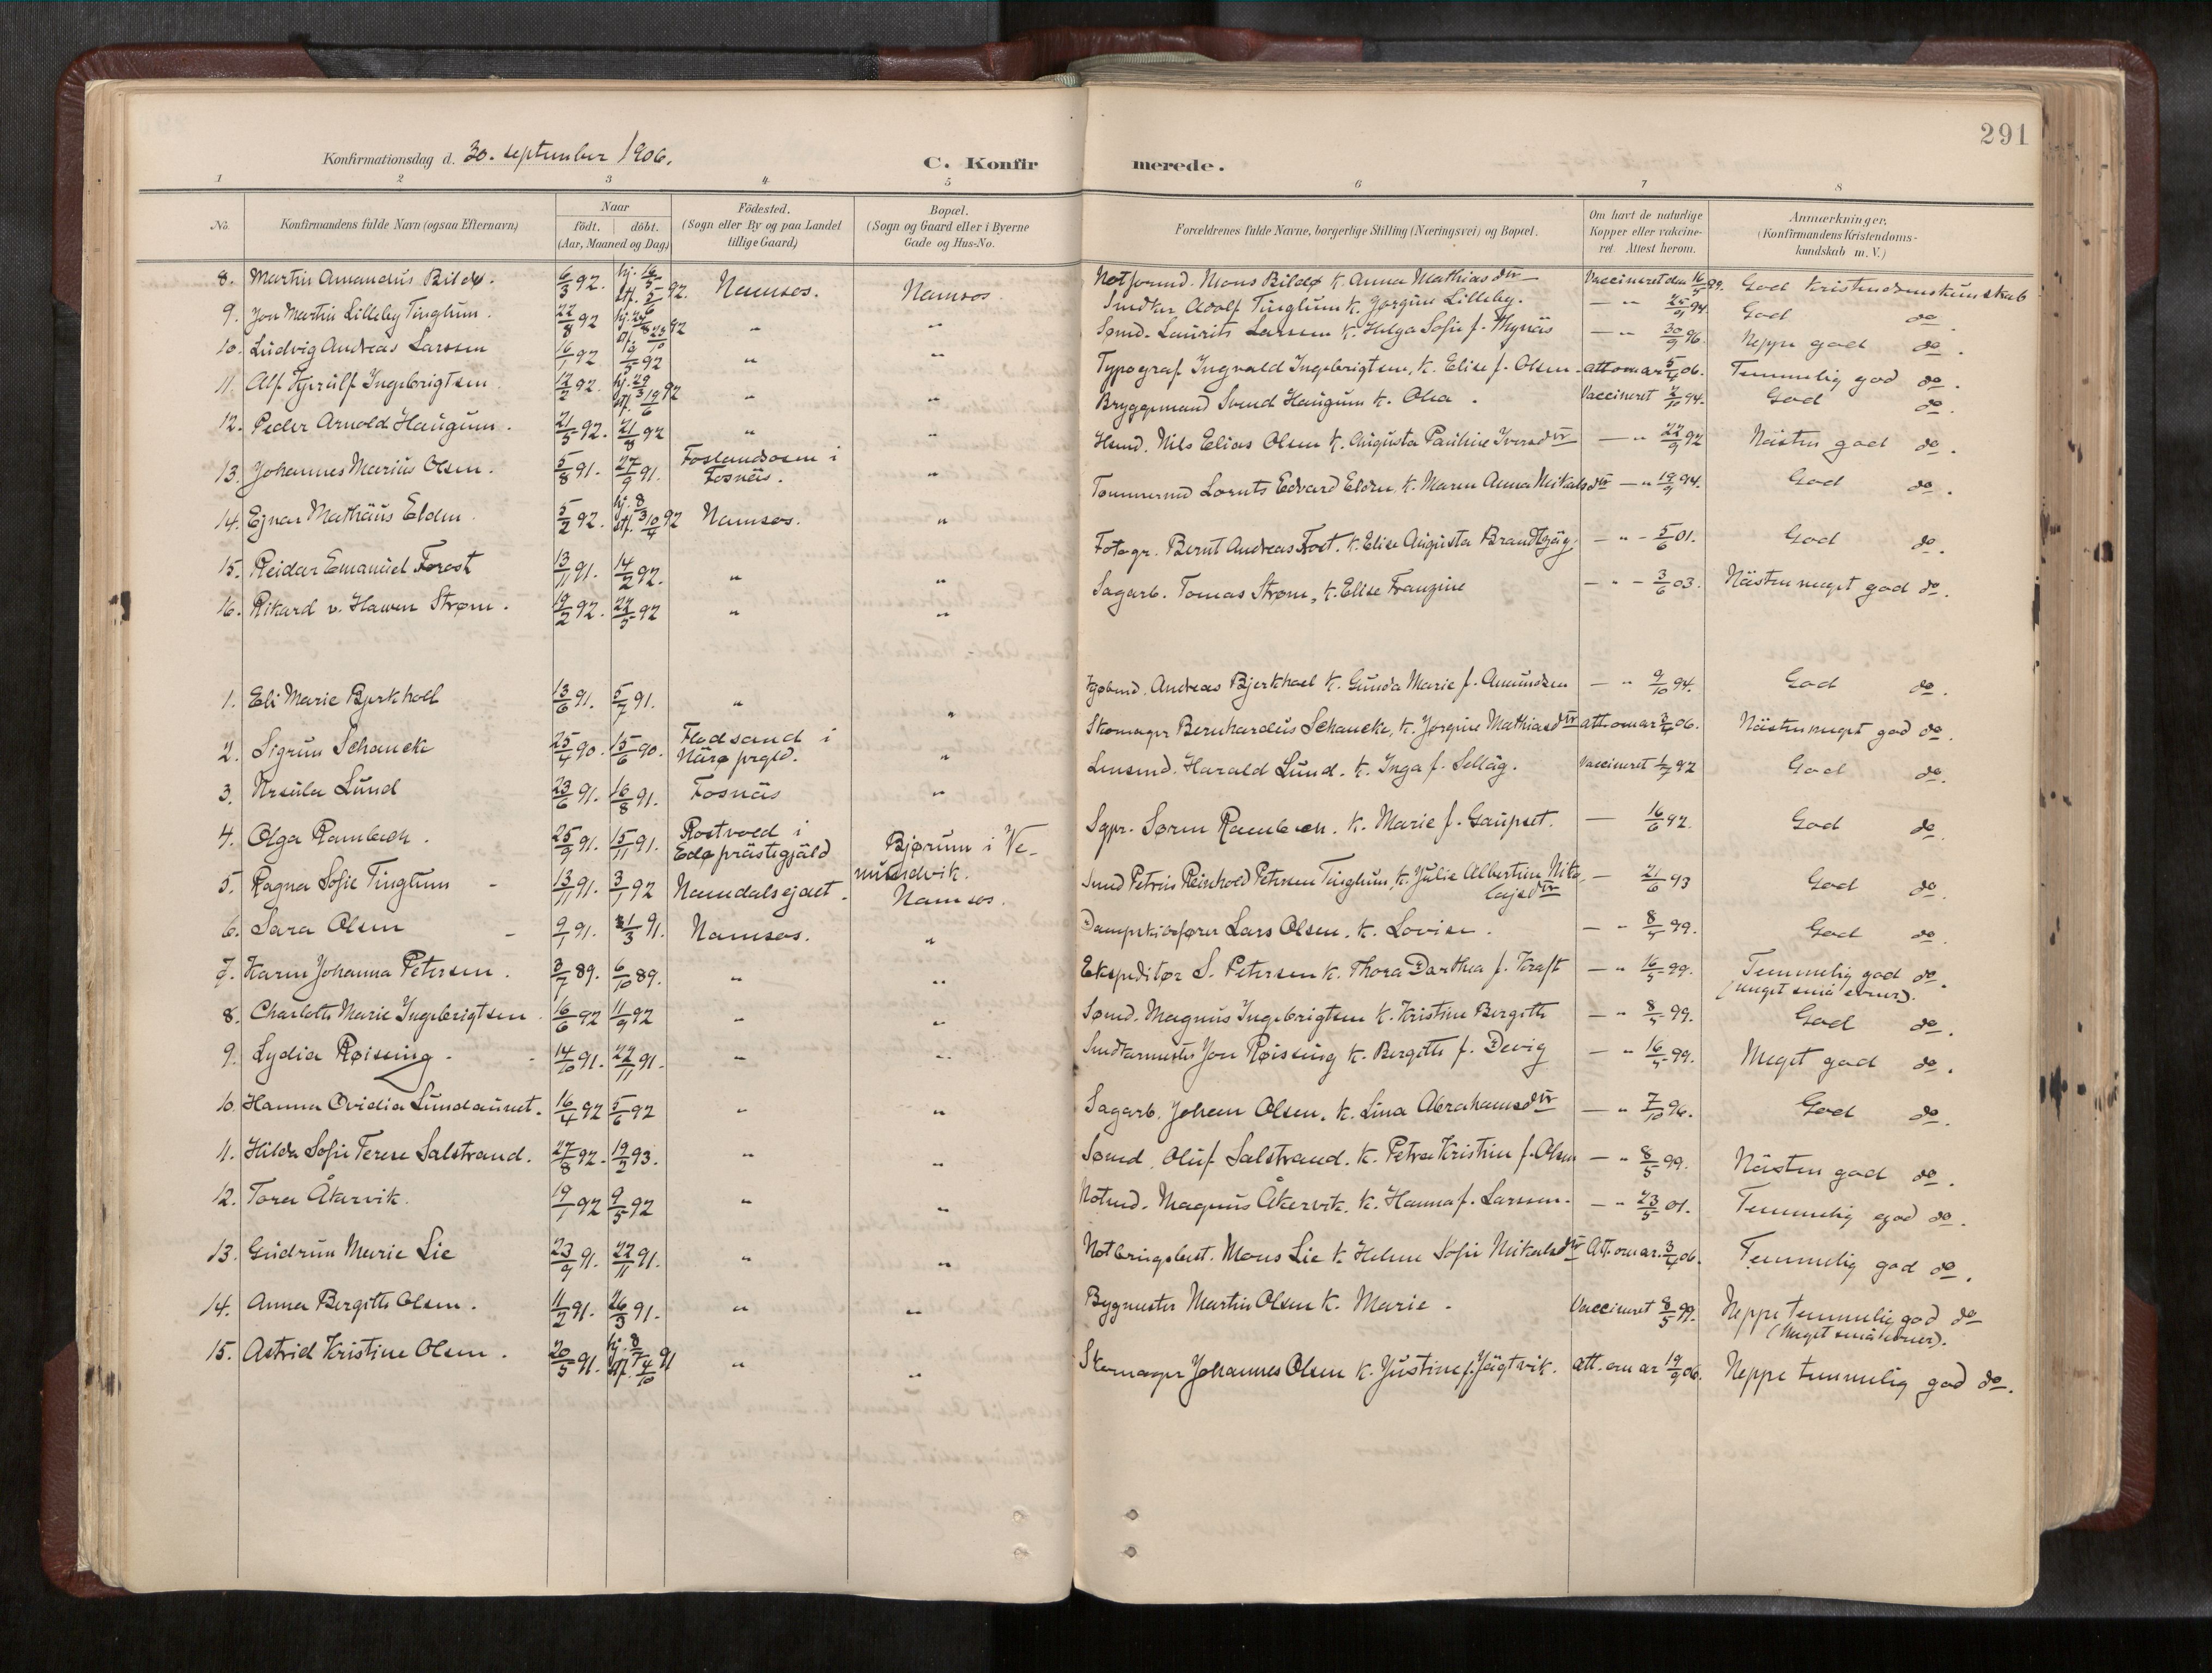 291
Konfirmationsdag d. 30. september 1906.
C. Konfirmerede.
1 2 3 4 5 6 7 8
No. Konfirmandens fulde Navn (ogsaa Efternavn) Naar født. døbt. (Aar, Maaned og Dag) Fødested. (Sogn eller By og paa Landet tillige Gaard) Bopæl. (Sogn og Gaard eller i Byerne Gade og Hus-No. Forældrenes fulde Navne, borgerlige Stilling (Næringsvei) og Bopæl. Om havt de naturlige Kopper eller vakcineret. Attest herom. Anmærkninger. (Konfirmandens Kristendomskundskab m. V.)
8. Martin Amandus Bildø. 6/3 92. hj. 16/5 stf. 5/6 92. Namsos. Namsos. Notformd. Mons Bildø k. Anna Mathiasdtr Vaccineret den 16/5 99. God Kristendomskunskab
9. Jon Martin Lilleby Tinghun. 22/8 92 " " Smedkar. Adolf Tinglum k. Jørgine Lilleby. — " 25/9 94. God do.
10. Ludvig Andreas Larssen 16/1 92 " " Sømd. Laurits Larssen k. Helga Sofie f. Thynäs — " 30/9 96. Neppe god do.
11. Alf Kjerulf Ingebrigtsen. 12/2 92. hj. 29/3 stf. 19/6 92 " " Typograf Ingvald Ingebrigtsen, k. Elise f. Olsen. att om ar 5/4 06. Temmelig god do.
12. Peder Arnold Haugum. 21/5 92. 21/8 92 " " Bryggemand Svend Haugum k. Olea. Vaccineret 2/10 94. God do.
13. Johannes Marius Olsen. 5/8 91. 27/9 91. Foslandsosen i Fosnäs. " Hsmd. Nils Elias Olsen k. Augusta Pauline Iversdtr — " 22/9 92 Nästen god do.
14. Ejnar Mathäus Elden. 5/2 92. hj. 8/3 stf. 10/4 92 Namsos. " Tømmermd Lornts Edvard Elden, k. Maren Anna Nikalsdtr — " 19/9 94. God do.
15. Reidar Emanuel Forost 13/11 91. 14/2 92. " " Fotogr. Bernt Andreas Frost. k. Elise Augusta Brandtzäg. — " — 5/6 01. God do.
16. Rikard v. Hawen Strøm. 19/2 92. 22/5 92 " " Sagarb. Tomas Strøm, k. Elise Franzine — " — 3/6 03. Nästen meget god do.
1. Eli Marie Bjerkholl 13/6 91. 5/7 91. " " Kjøbmd. Andreas Bjerkhoel k. Gunda Marie f. Amundsen — " 9/10 94. God do.
2. Sigrun Schancke 25/4 90. 15/6 90. Flodsand i Närø prgld. " Skomager Bernhardus Schancke, k. Jørgine Mathiasdtr att om ar 3/4 06. Nästen meget god do.
3. Ursula Lund 23/6 91. 16/8 91. Fosnäs " Lensmd. Harald Lund. k. Inga f. Selläg. Vaccineret 1/7 92 God do.
4. Olga Rambech. 25/9 91. 15/11 91. Rostvold i Edø prästegjäld Bjørum i Vemundvik. Sgpr. Søren Rambech. k. Marie f. Gaupset. — 16/6 92. God do.
5. Ragna Sofie Tinglum 13/11 91. 3/1 92 Namdalsejdet. Namsos. Smed Petrus Reinhold Petersen Tinglum, k. Julie Albertine Nikolajsdtr — 21/6 93 God do.
6. Sara Olsen 9/1 91. 31/3 91. Namsos. " Dampskibsfører Lars Olsen. k. Lovise. — " 8/5 99. God do.
7. Karen Johanna Petersen. 3/7 89. 6/10 89. " " Ekspeditør S. Petersen k. Thora Darthea f. Kraft — " 16/5 99. Temmelig god do. (meget små evner).
8. Charlotte Marie Ingebrigtsen 16/6 92 11/9 92 " " Sømd. Magnus Ingebrigtsen k. Kristine Bergitte — " 8/5 99. God do.
9. Lydia Røissing. 14/10 91. 22/11 91. " " Smedkarmester Jon Røissing k. Bergitte f. Devig — " 16/5 99. Meget god do.
10. Hanna Ovidia Lundaunet. 16/4 92 5/6 92 " " Sagarb. Johan Olsen. k. Lina Abrahamsdtr — " 7/10 96. God do.
11. Hilda Sofie Terese Salstrand. 27/8 92. 19/2 93. " " Sømd. Oluf Salstrand. k. Petra Kristine f. Olsen — " 8/5 99. Nästen god do.
12. Tora Åkervik. 19/1 92 9/5 92 " " Notmd. Magnus Åkervik. k. Hanna f. Larssen. — " 23/5 01. Temmelig god do.
13. Gudrun Marie Lie 23/9 91. 22/11 91. " " Notbringsbest. Mons Lie k. Helene Sofie Nikalsdtr Att. om ar. 3/4 06. Temmelig god do.
14. Anna Bergitte Olsen. 11/2 91. 26/3 91. " " Bygmester Martin Olsen k. Marie. Vaccineret 8/5 99. Neppe temmelig god do (Meget små evner).
15. Astrid Kristine Olsen. 20/5 91. hj. 8/7 stf. 4/10 91 " " Skomager Johannes Olsen k. Justine f. Jägtvik. att. om ar 19/9 06. Neppe temmelig god do.